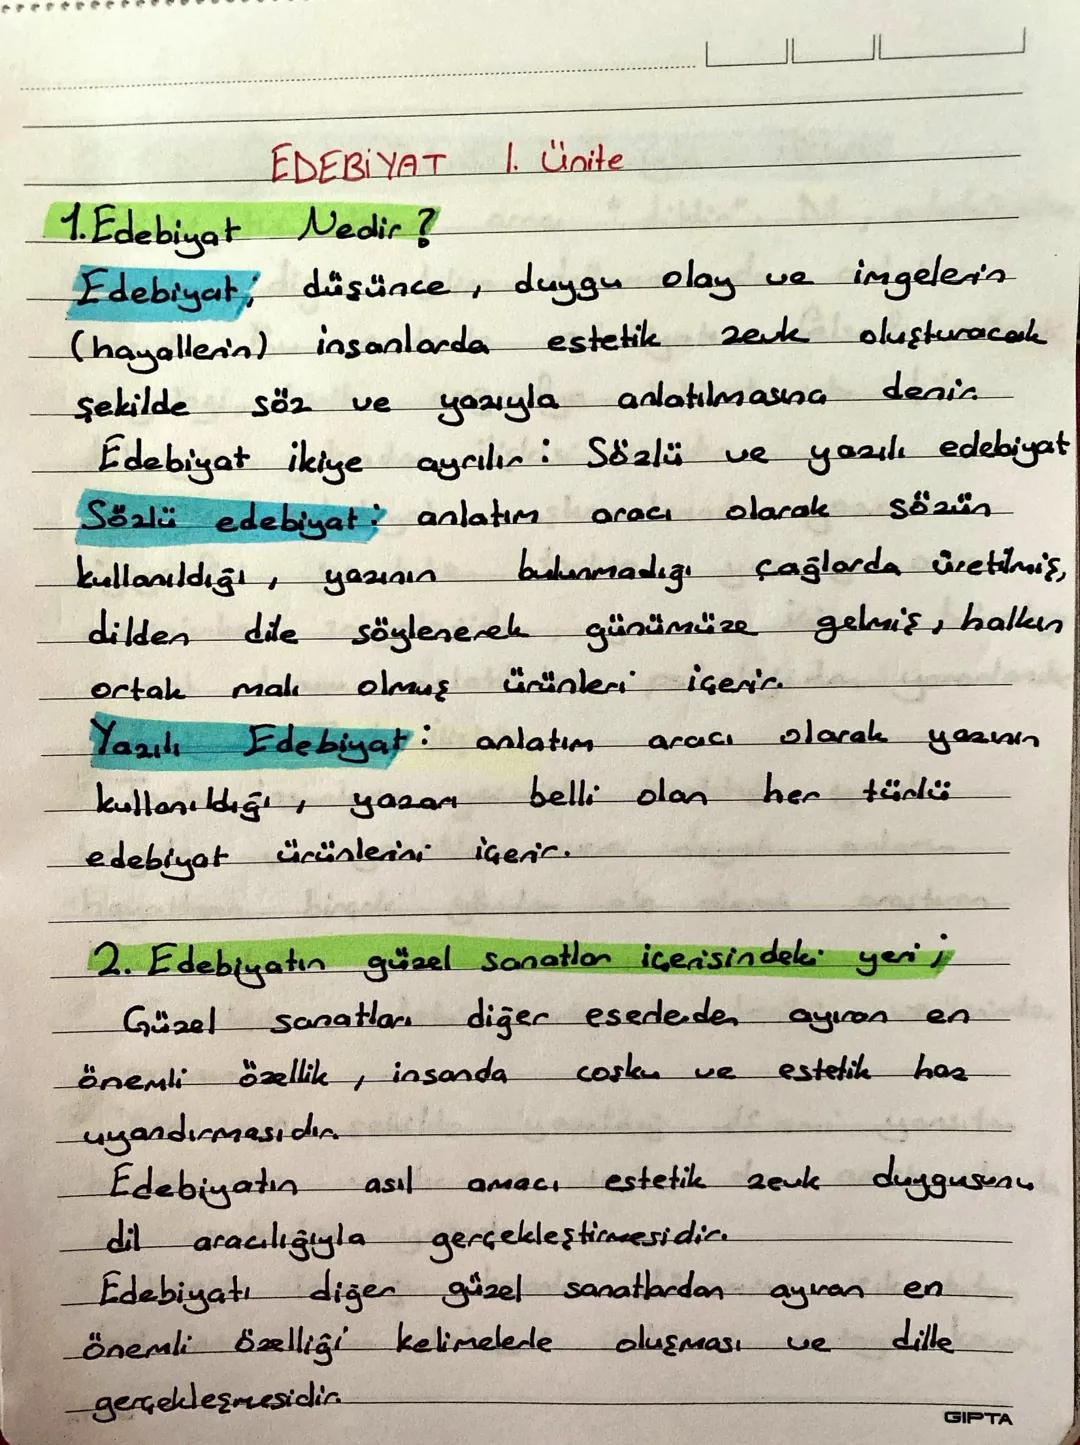 EDEBİYAT 1. Ünite
1. Edebiyat Nedir?
Edebiyat; düşünce, duygu olay ve imgelerin
(hayallerin) insanlarda estetik zevk oluşturacak
şekilde söz ve yazıyla anlatılmasına denir.
Edebiyat ikiye ayrılır: Sözlü ve yazılı edebiyat
Sözlü edebiyat: anlatım aracı olarak sözün
kullanıldığı, yazının bulunmadığı çağlarda üretilmiş,
dilden dile söylenerek günümüze gelmiş, halkın
ortak malı olmuş ürünleri içerir.
Yazılı Edebiyat: anlatım aracı olarak yazının
kullanıldığı, yazarı belli olan her türlü
edebiyat ürünlerini içerir.
2. Edebiyatın güzel sanatlar içerisindeki yeri;
Güzel sanatları diğer eserlerden ayıran en
önemli özellik, insanda coşku ve estetik haz
uyandırmasıdır.
Edebiyatın asıl amacı estetik zevk duygusunu
dil aracılığıyla gerçekleştirmesidir.
Edebiyatı diğer güzel sanatlardan ayıran en
önemli özelliği kelimelerle oluşması ve dille
gerçekleşmesidir.
GIPTA